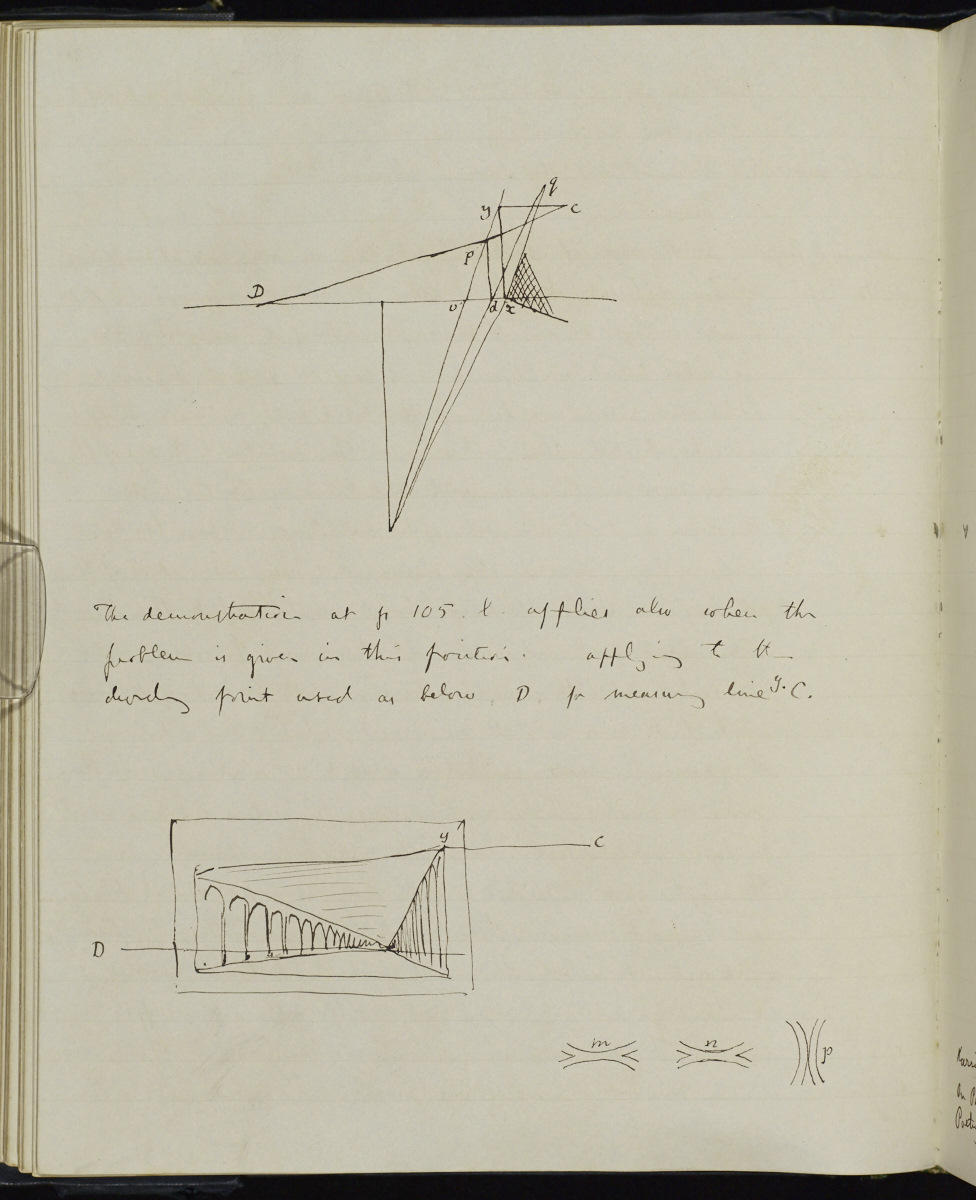 q
y C
p
D v d x
The demonstration at p 105. l. applies also when the
problem is given in this position. applying to the
dividing point used as below. D. for measuring line y. C.
y C
D
m n p